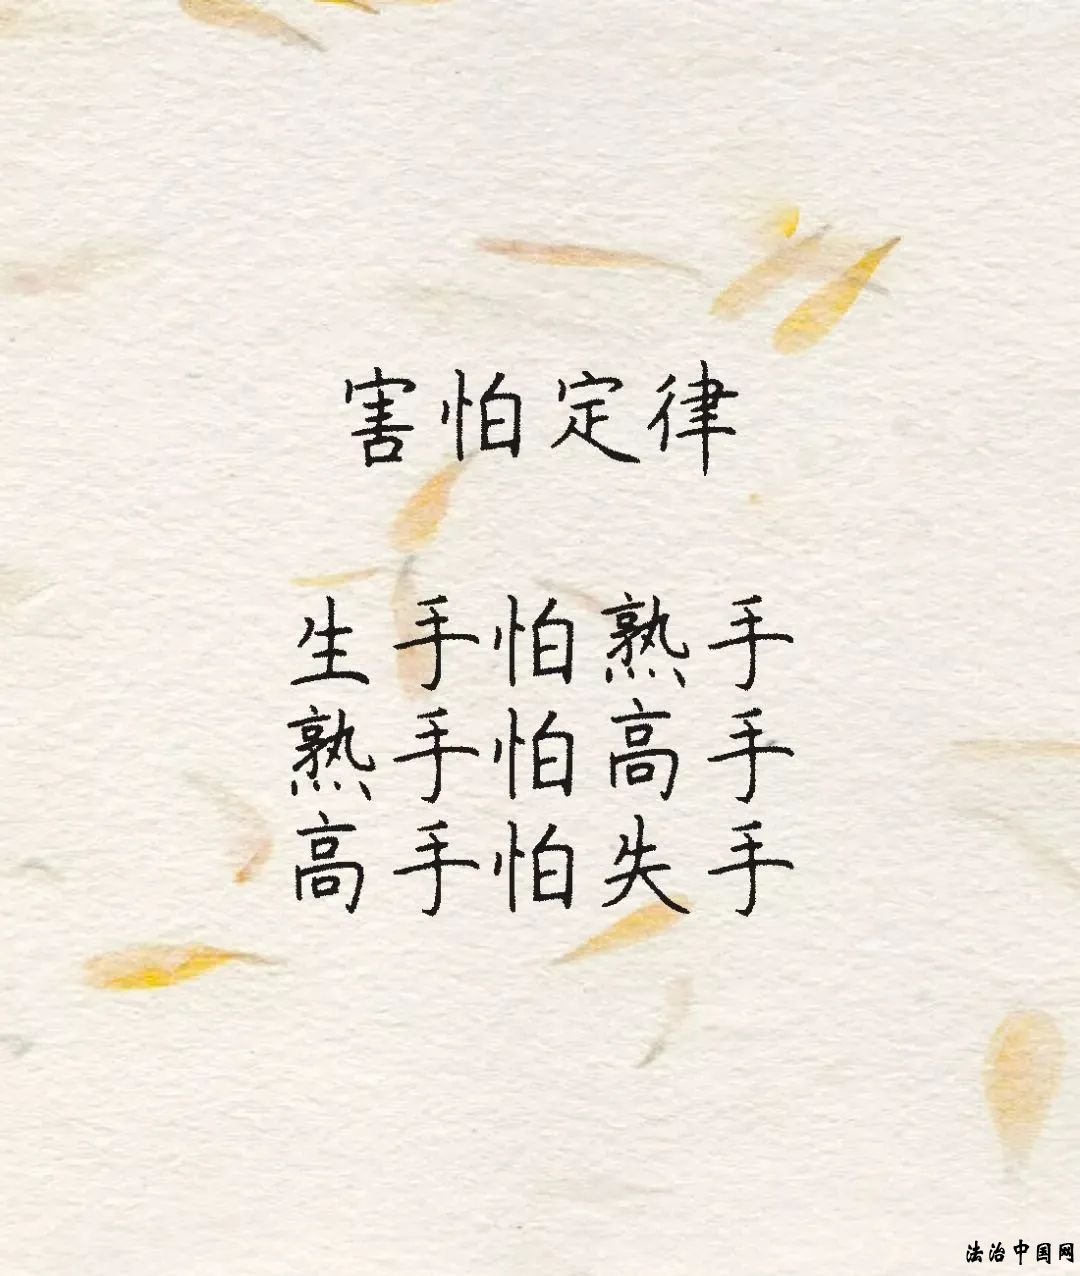 害怕定律
生手怕熟手
熟手怕高手
高手怕失手
法治中国网